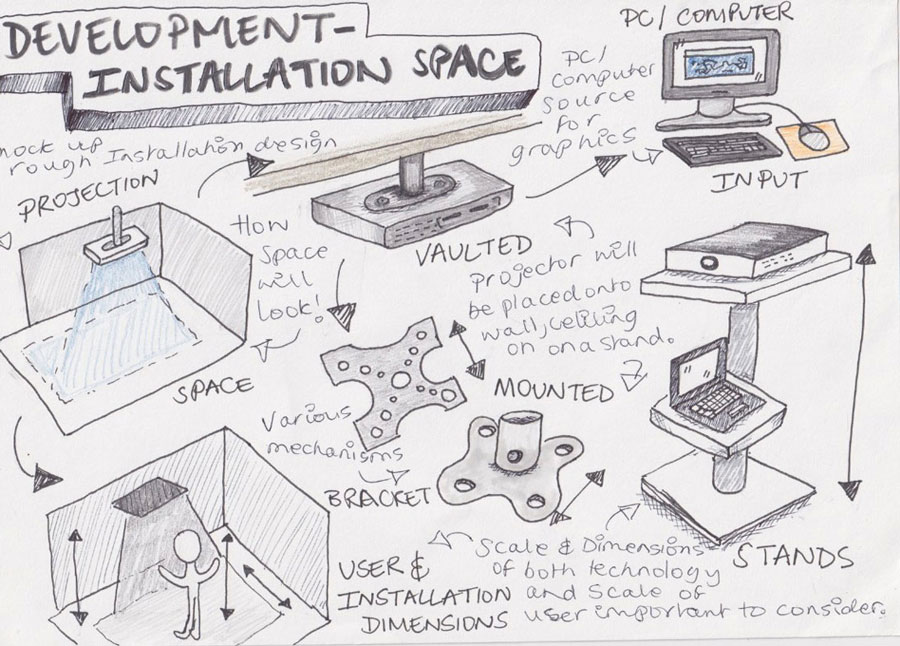 DEVELOPMENT-
INSTALLATION SPACE
mock up
rough Installation design
PROJECTION
How
Space
will
look!
SPACE
VAULTED
PC/
computer
source
for
graphics
PC/COMPUTER
INPUT
Projector will
be placed onto
wall, ceiling
on on a stand.
MOUNTED
Various
mechanisms
BRACKET
STANDS
USER &
INSTALLATION
DIMENSIONS
Scale & Dimensions
of both technology
and scale of
user important to consider.